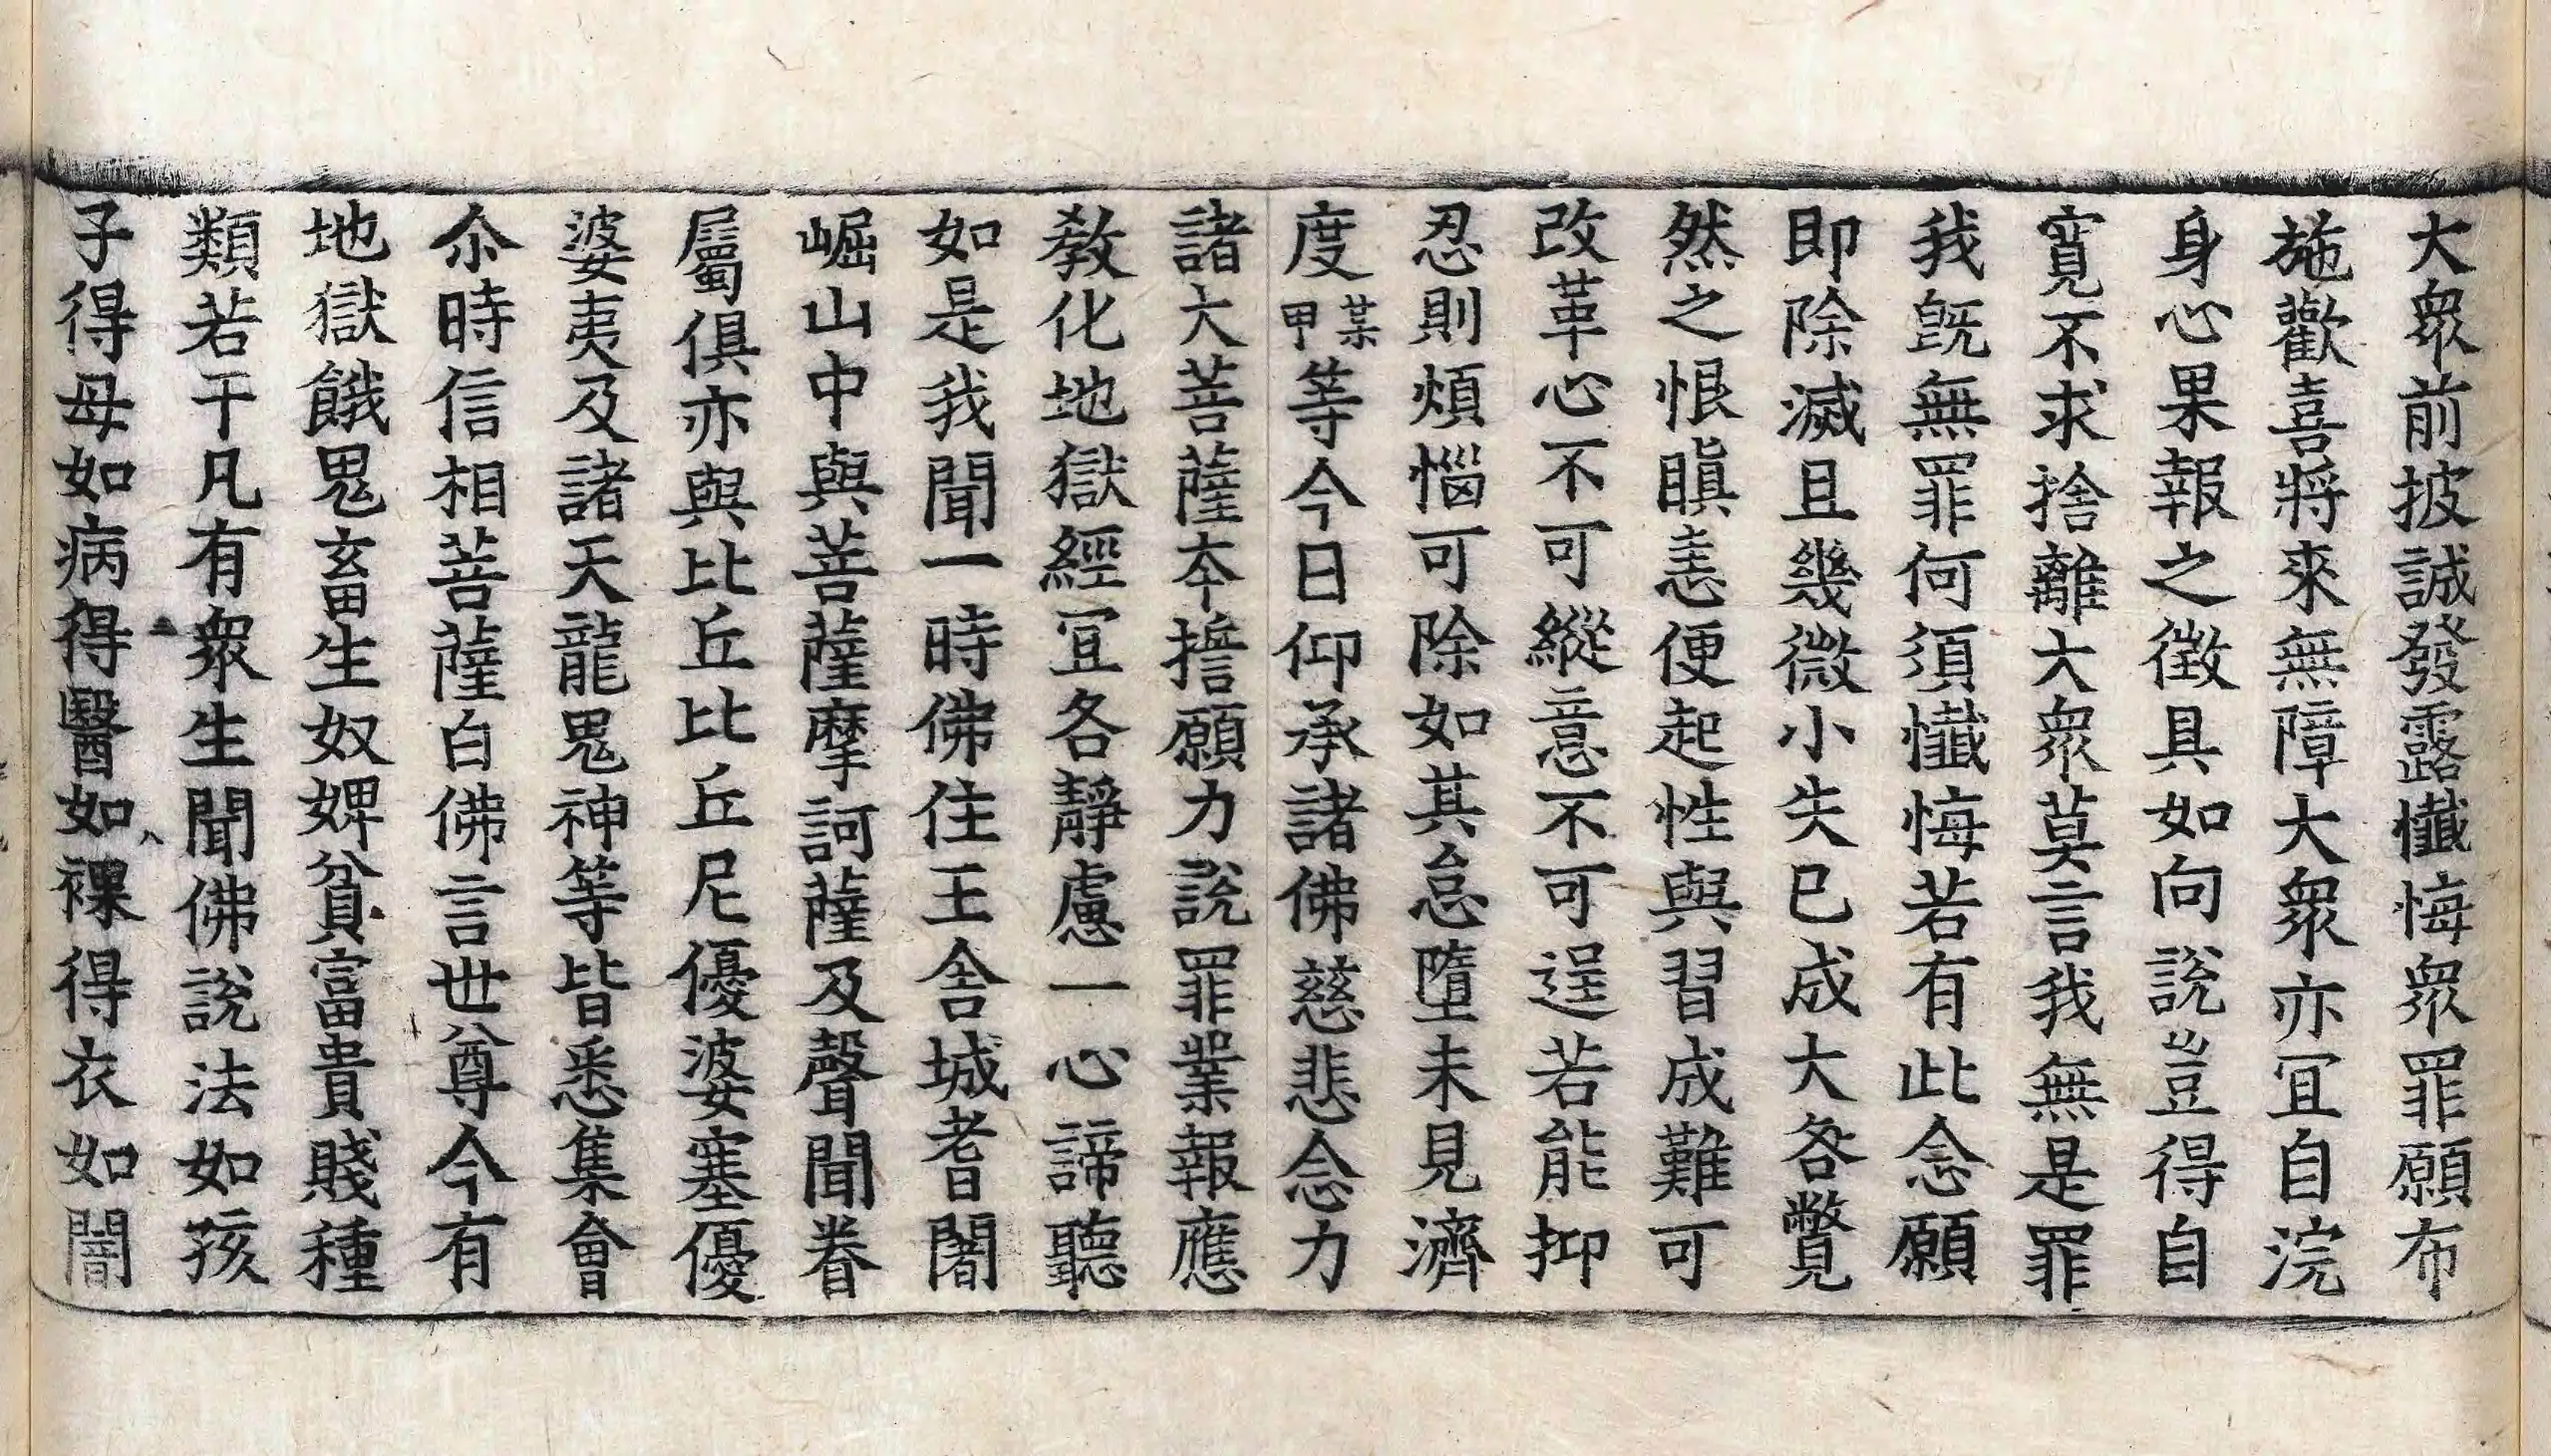 大衆前披誠發露懺悔衆罪願布
施歡喜將來無障大衆亦冝自浣
身心果報之徵具如向說豈得自
寬不求捨離大衆莫言我無是罪
我旣無罪何須懺悔若有此念願
即除滅且幾微小失已成大咎瞥
然之恨瞋恚便起性與習成難可
改革心不可縱意不可逞若能抑
忍則煩惱可除如其怠墮未見濟
度某甲等今日仰承諸佛慈悲念力
諸大菩薩本誓願力說罪業報應
教化地獄經冝各靜慮一心諦聽
如是我聞一時佛住王舍城耆闍
崛山中與菩薩摩訶薩及聲聞眷
屬俱亦與比丘比丘尼優婆塞優
婆夷及諸天龍鬼神等皆悉集會
尒時信相菩薩白佛言世尊今有
地獄餓鬼畜生奴婢貧富貴賤種
類若干凡有衆生聞佛說法如孩
子得母如病得醫如裸得衣如闇